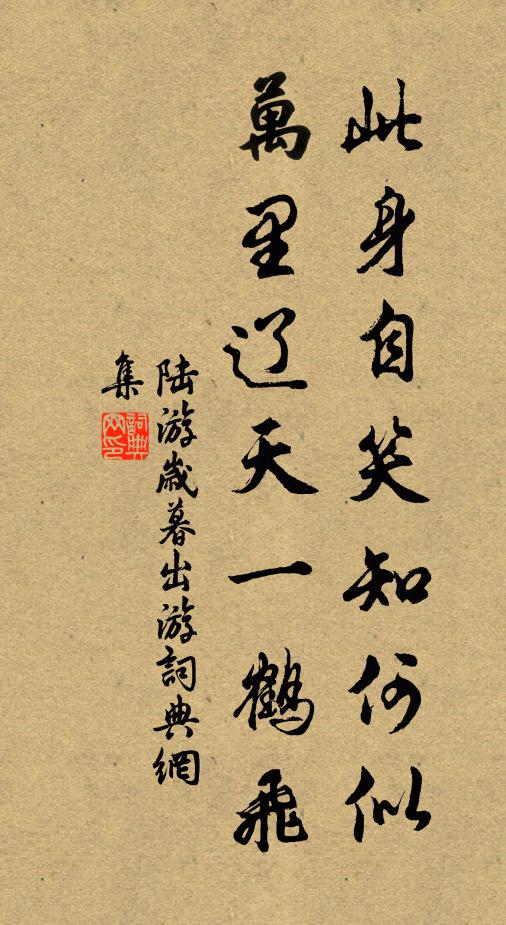 此身自笑知何似
萬里辽天一鶴飛
陆游歲暮出游詞典網
集
詞典網印